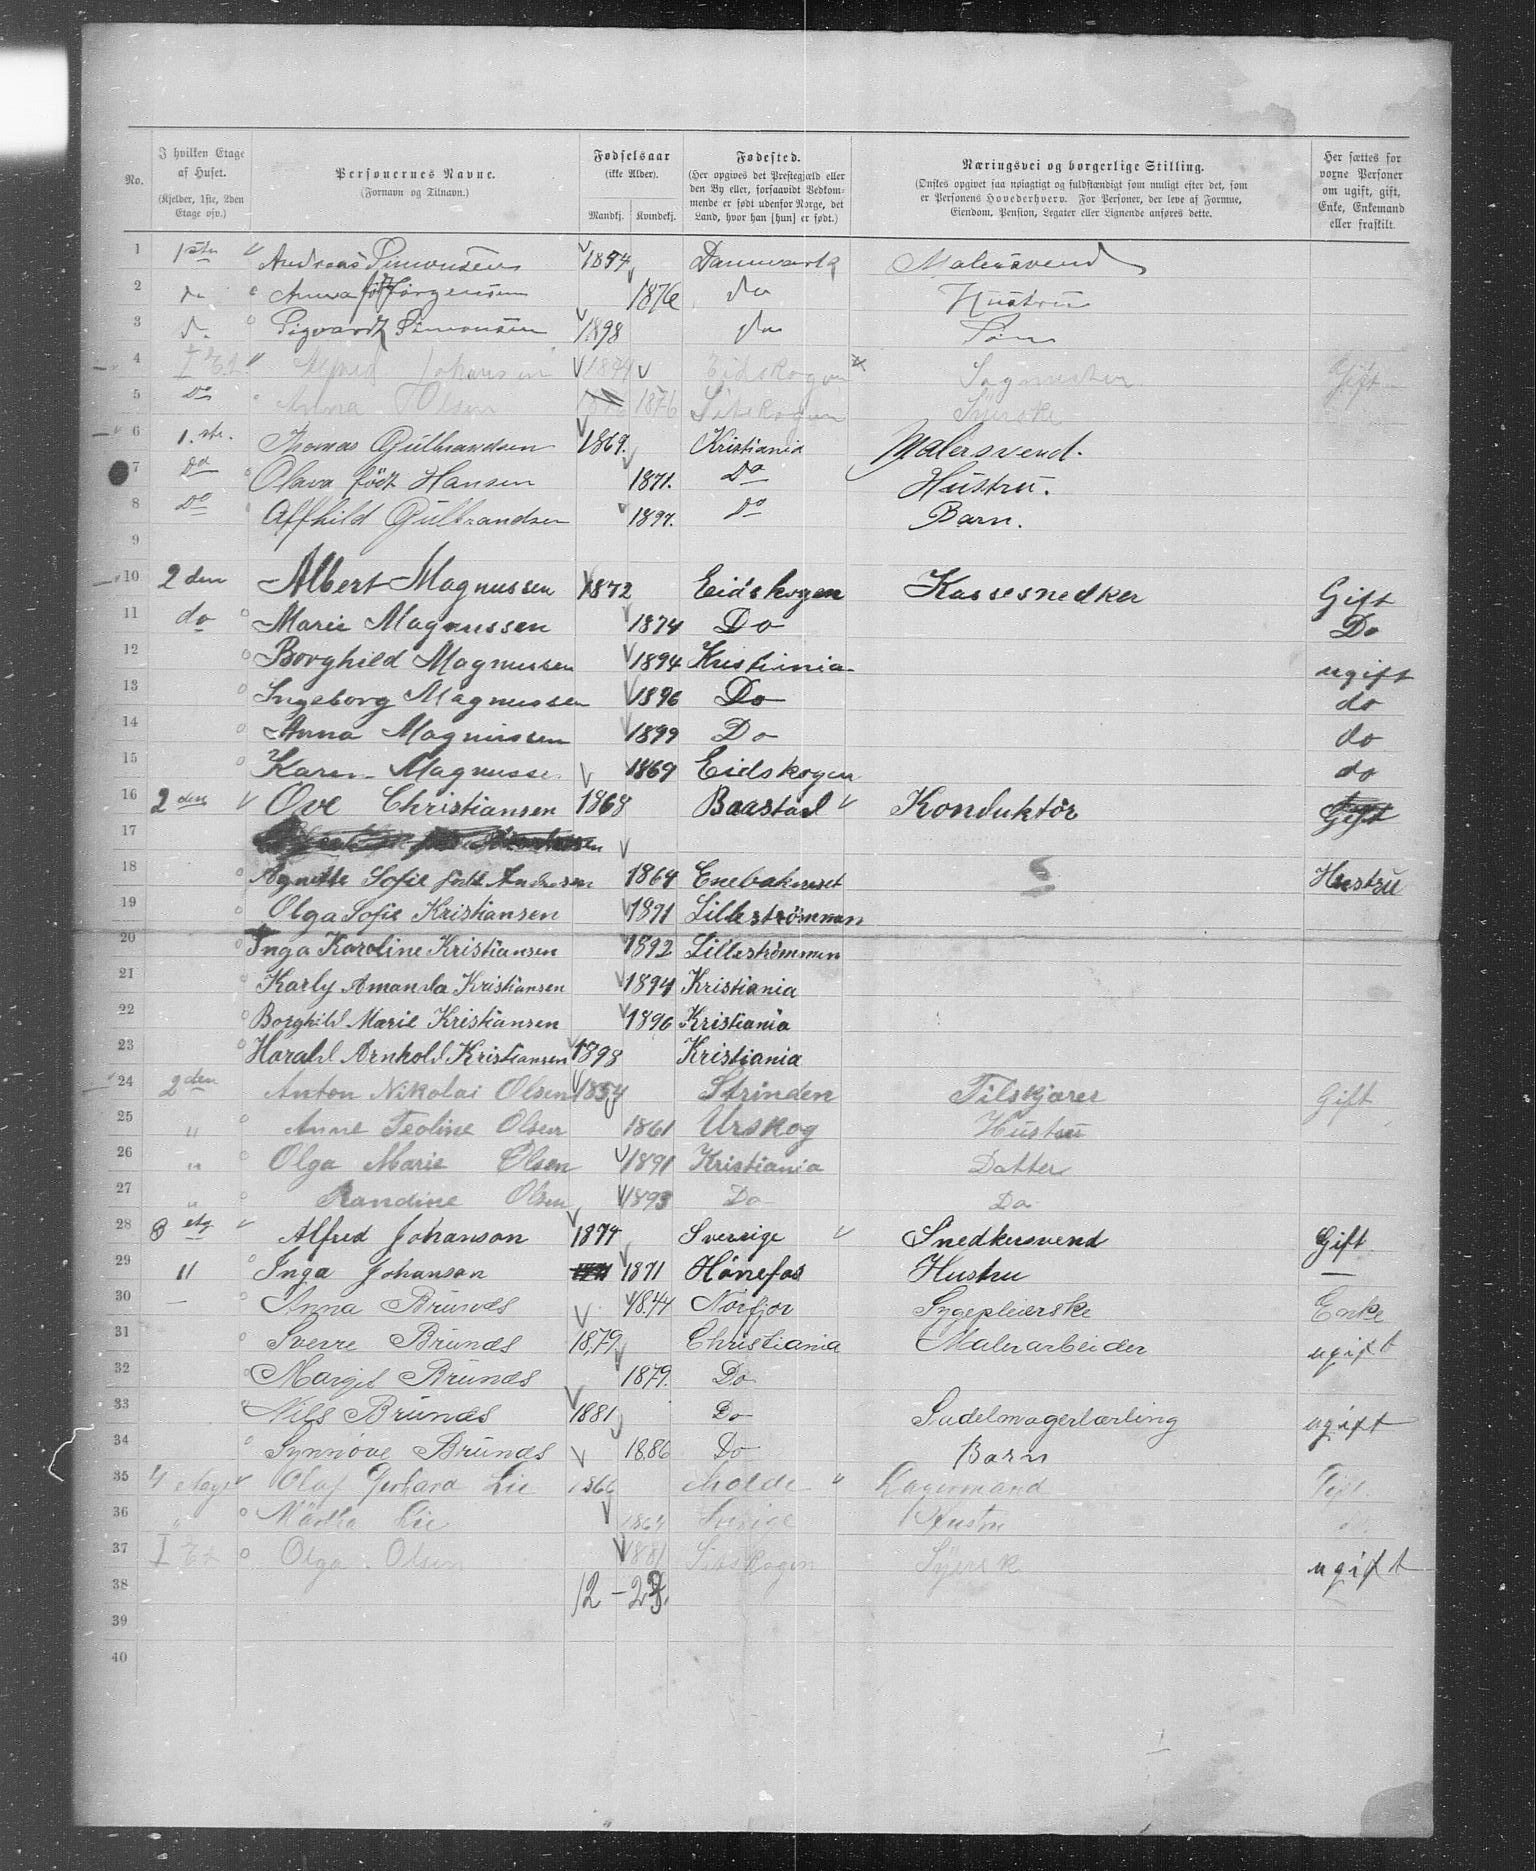 No. | I hvilken Etage af Huset. (Kjelder, 1ste, 2den Etage osv.) | Personernes Navne. (Fornavn og Tilnavn.) | Fødselsaar (ikke Alder). Mandkj. Kvindekj. | Fødested. (Her opgives det Prestegjæld eller den By eller, forsaavidt Vedkommende er født udenfor Norge, det Land, hvor han [hun] er født.) | Næringsvei og borgerlige Stilling. (Ønskes opgivet saa nøiagtigt og fuldstændigt som muligt efter det, som er Personens Hovederhverv. For Personer, der leve af Formue, Eiendom, Pension, Legater eller Lignende anføres dette. | Her sættes for voxne Personer om ugift, gift, Enke, Enkemand eller fraskilt.
1 1ste Andreas Simonsen 1874 Danmark Malersvend
2 do Anna født Jørgensen 1876 do Hustru
3 d. Sigvardt Simonsen 1898 do Søn
4 I Et. Alfred Johansen 1874 Eidskogen Sagmester Gift
5 Do Anna Olsen 1876 Eidskogen Syerske
6 1.ste. Thomas Gulbrandsen 1869. Kristiania Malersvend.
7 Do Olava født Hansen 1871. Do Hustru.
8 Do Affhild Gulbrandsen 1897. Do Barn.
9
10 2den Albert Magnussen 1872 Eidskogen Kassesnedker Gift
11 do Marie Magnussen 1874 Do Do
12 Borghild Magnussen 1894 Kristiania ugift
13 Ingeborg Magnussen 1896 Do do
14 Anna Magnussen 1899 Do do
15 Karen Magnussen 1869 Eidskogen do
16 2den Ove Christiansen 1868 Baastad Konduktør Gift
17
18 Agnette Sofie født Andresen 1864 Enebakneset Hustru
19 Olga Sofie Kristiansen 1891 Lillestrømmen
20 Inga Karoline Kristiansen 1892 Lillestrømmen
21 Karly Amanda Kristiansen 1894 Kristiania
22 Borghild Marie Kristiansen 1896 Kristiania
23 Harald Arnhold Kristiansen 1898 Kristiania
24 2den Anton Nikolai Olsen 1854 Strinden Filskjærer Gift
25 " Anne Teoline Olsen 1861 Urskog Hustru
26 " Olga Marie Olsen 1891 Kristiania Datter
27 " Randine Olsen 1893 Do Do
28 3 etg Alfred Johanson 1874 Sverige Snedkersvend Gift
29 " Inga Johanson 1871 Hønefos Hustru —
30 — Anna Brunæs 1844 Norfjor Sygepleierske Enke
31 Sverre Brunæs 1879. Christiania Malerarbeider ugift
32 Margit Brunæs 1879. Do
33 Nils Brunæs 1881 Do Sadelmagerlærling ugift
34 Synnøve Brunæs 1886 Do Barn
35 4 etage Olaf Gerhard Lie 1866 Molde Lagermand Gift
36 " Martha Lie 1864 Sverige Hustru
37 I Et Olga Olsen 1881 Eidskogen Syersk ugift
38 12 –
39
40